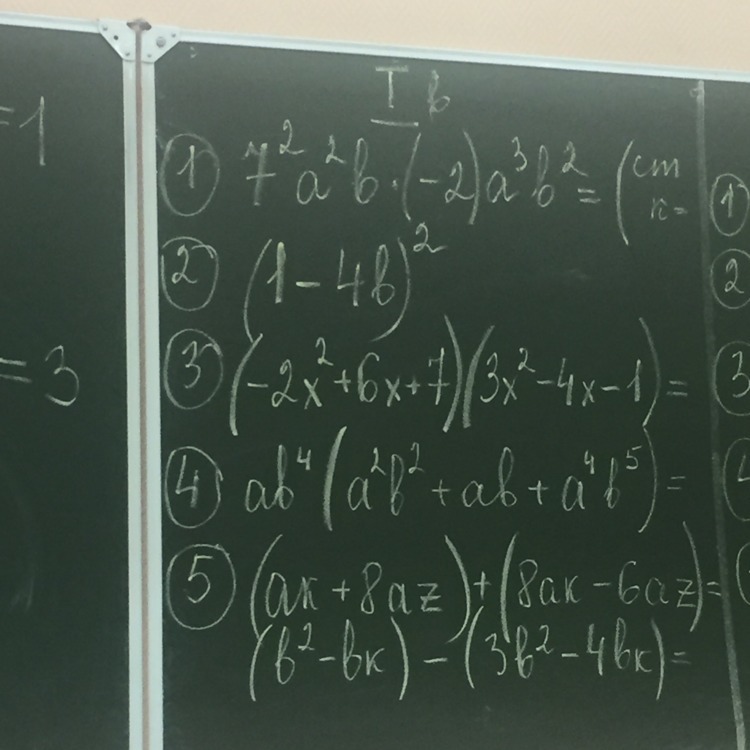 =1
=3
I в
① 7²a²b·(-2)a³b² = (ст
к=
② (1-4b)²
③ (-2x²+6x+7)(3x²-4x-1)=
④ ab⁴(a²b²+ab+a⁴b⁵)=
⑤ (aк+8az)+(8aк-6az)=
(b²-bк)-(3b²-4bк)=
1
2
3
4